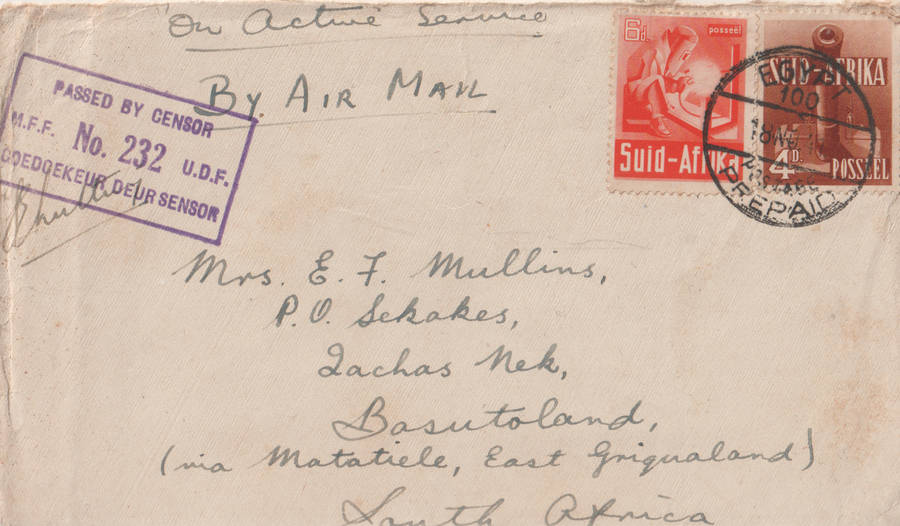 On Active Service
By Air Mail
PASSED BY CENSOR
M.F.F. No. 232 U.D.F.
GOEDGEKEUR DEUR SENSOR
6d. posseël
Suid-Afrika
SUID-AFRIKA
4D. POSSEËL
EGYPT
100
PREPAID
Mrs. E. F. Mullins,
P.O. Sekakes,
Qachas Nek,
Basutoland,
(via Matatiele, East Griqualand)
South Africa